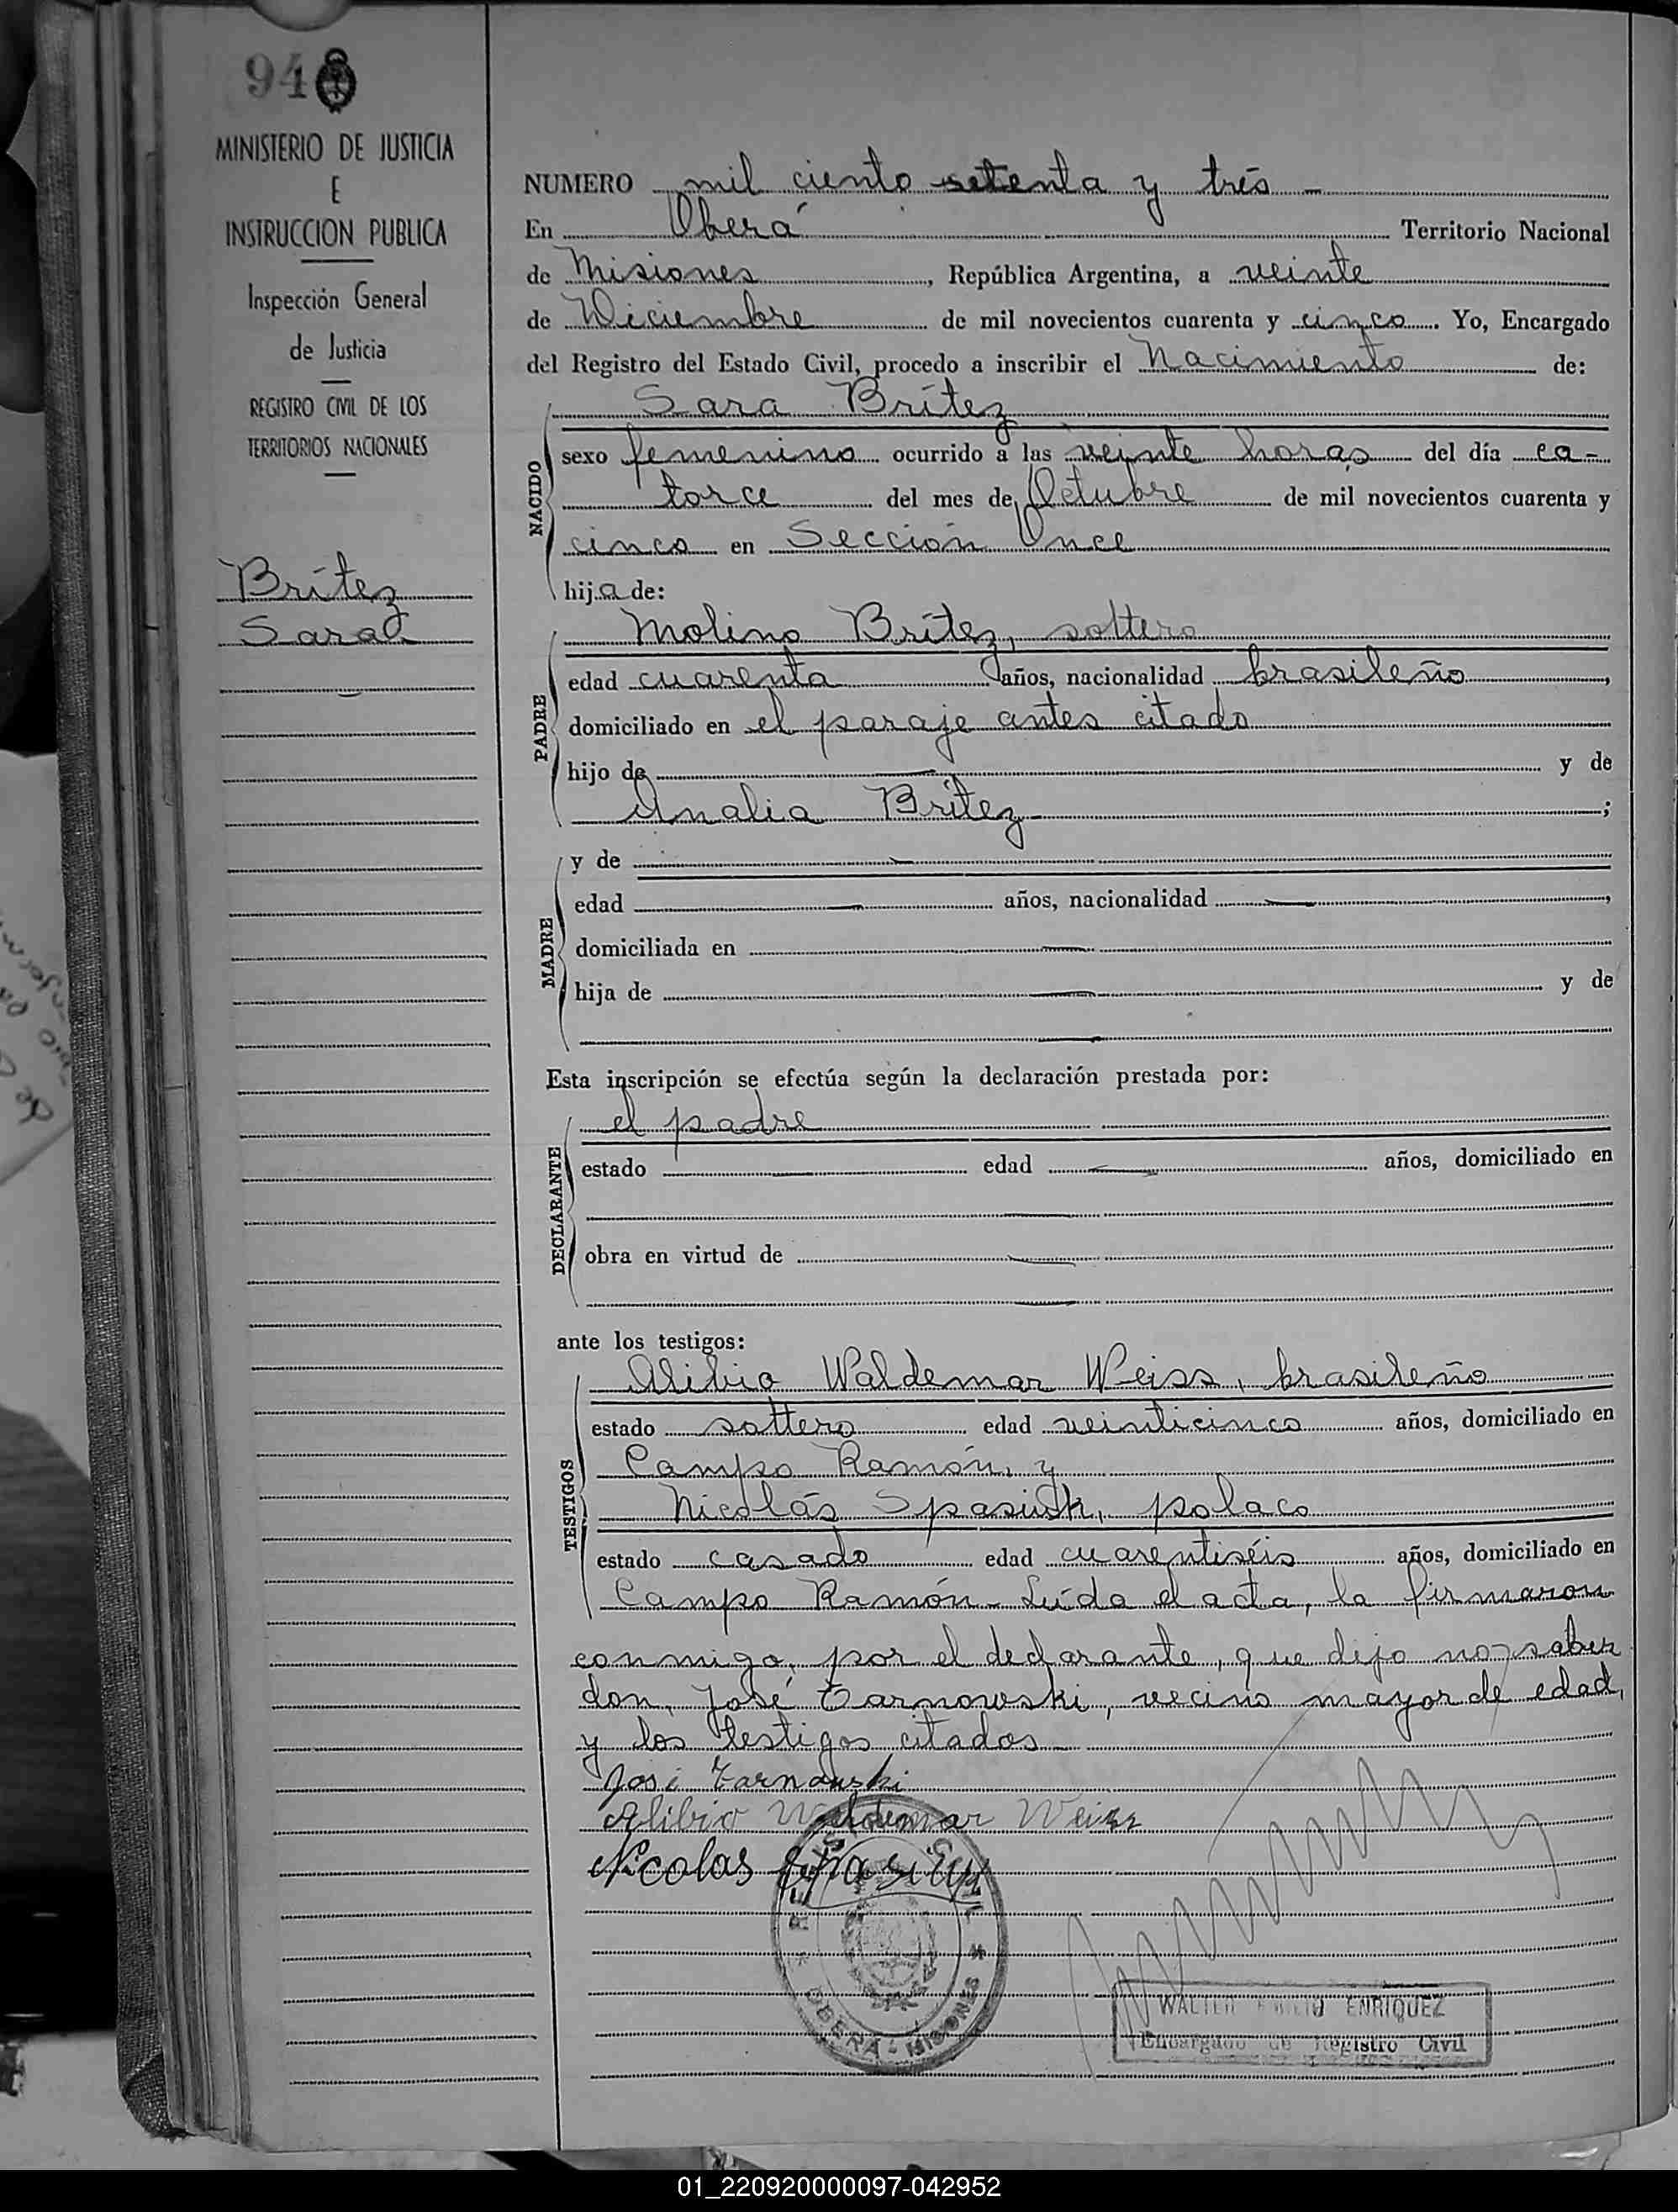 94
MINISTERIO DE JUSTICIA
E
INSTRUCCION PUBLICA
Inspección General
de Justicia
REGISTRO CIVIL DE LOS
TERRITORIOS NACIONALES
Brítez
Sara
NUMERO mil ciento setenta y trés -
En Oberá Territorio Nacional
de Misiones, República Argentina, a veinte
de Diciembre de mil novecientos cuarenta y cinco. Yo, Encargado
del Registro del Estado Civil, procedo a inscribir el Nacimiento de:
NACIDO
Sara Brítez
sexo femenino ocurrido a las veinte horas del día ca-
torce del mes de Octubre de mil novecientos cuarenta y
cinco en Sección Once
hija de:
PADRE
Molino Brítez, soltero
edad cuarenta años, nacionalidad brasileño,
domiciliado en el paraje antes citado
hijo de — y de
Analia Brítez - ;
MADRE
y de —
edad — años, nacionalidad —,
domiciliada en —
hija de — y de
—
Esta inscripción se efectúa según la declaración prestada por:
DECLARANTE
el padre
estado — edad — años, domiciliado en
—
obra en virtud de —
—
ante los testigos:
TESTIGOS
Alibio Waldemar Weiss, brasileño
estado soltero edad veinticinco años, domiciliado en
Campo Ramón, y
Nicolás Spasiuk, polaco
estado casado edad cuarentiséis años, domiciliado en
Campo Ramón - Leída el acta, la firmaron
conmigo, por el declarante, que dijo no saber
don José Tarnowski, vecino mayor de edad,
y los testigos citados -
José Tarnowski
Alibio Waldemar Weiss
Nicolas
OBERA - MISIONES
WALTER EMILIO ENRIQUEZ
Encargado de Registro Civil
01_220920000097-042952